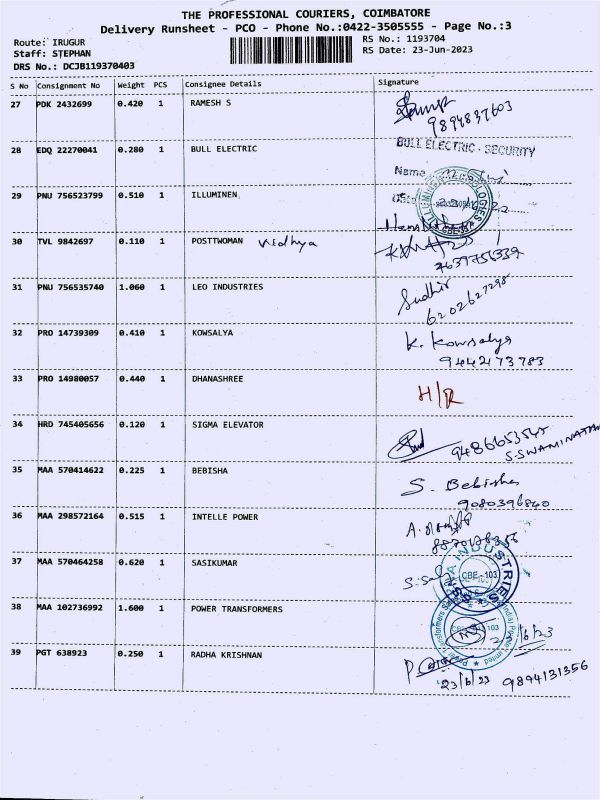 THE PROFESSIONAL COURIERS, COIMBATORE
Delivery Runsheet - PCO - Phone No.:0422-3505555 - Page No.:3
Route: IRUGUR
RS No.: 1193704
Staff: STEPHAN
RS Date: 23-Jun-2023
DRS No.: DCJB119370403
S No Consignment No Weight PCS Consignee Details Signature
27 PDK 2432699 0.420 1 RAMESH S
9894837603
28 EDQ 22270041 0.280 1 BULL ELECTRIC BULL ELECTRIC - SECURITY
Name
29 PNU 756523799 0.510 1 ILLUMINEN
30 TVL 9842697 0.110 1 POSTTWOMAN Vidhya
31 PNU 756535740 1.060 1 LEO INDUSTRIES Sudhir
6202627298
32 PRO 14739309 0.410 1 KOWSALYA K. Kowsalya
9442173783
33 PRO 14980057 0.440 1 DHANASHREE H/R
34 HRD 745405656 0.120 1 SIGMA ELEVATOR
S.SWAMINATHAN
35 MAA 570414622 0.225 1 BEBISHA S. Bebisha
9080396840
36 MAA 298572164 0.515 1 INTELLE POWER
37 MAA 570464258 0.620 1 SASIKUMAR
INDUSTRIES
CBE-103
38 MAA 102736992 1.600 1 POWER TRANSFORMERS
23/6/23
39 PGT 638923 0.250 1 RADHA KRISHNAN
23/6/23 9894131356